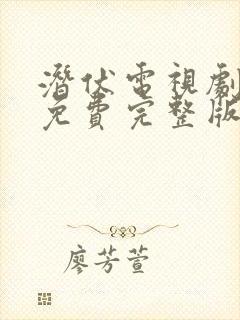 潛伏電視劇
免費完整版
廖芳萱